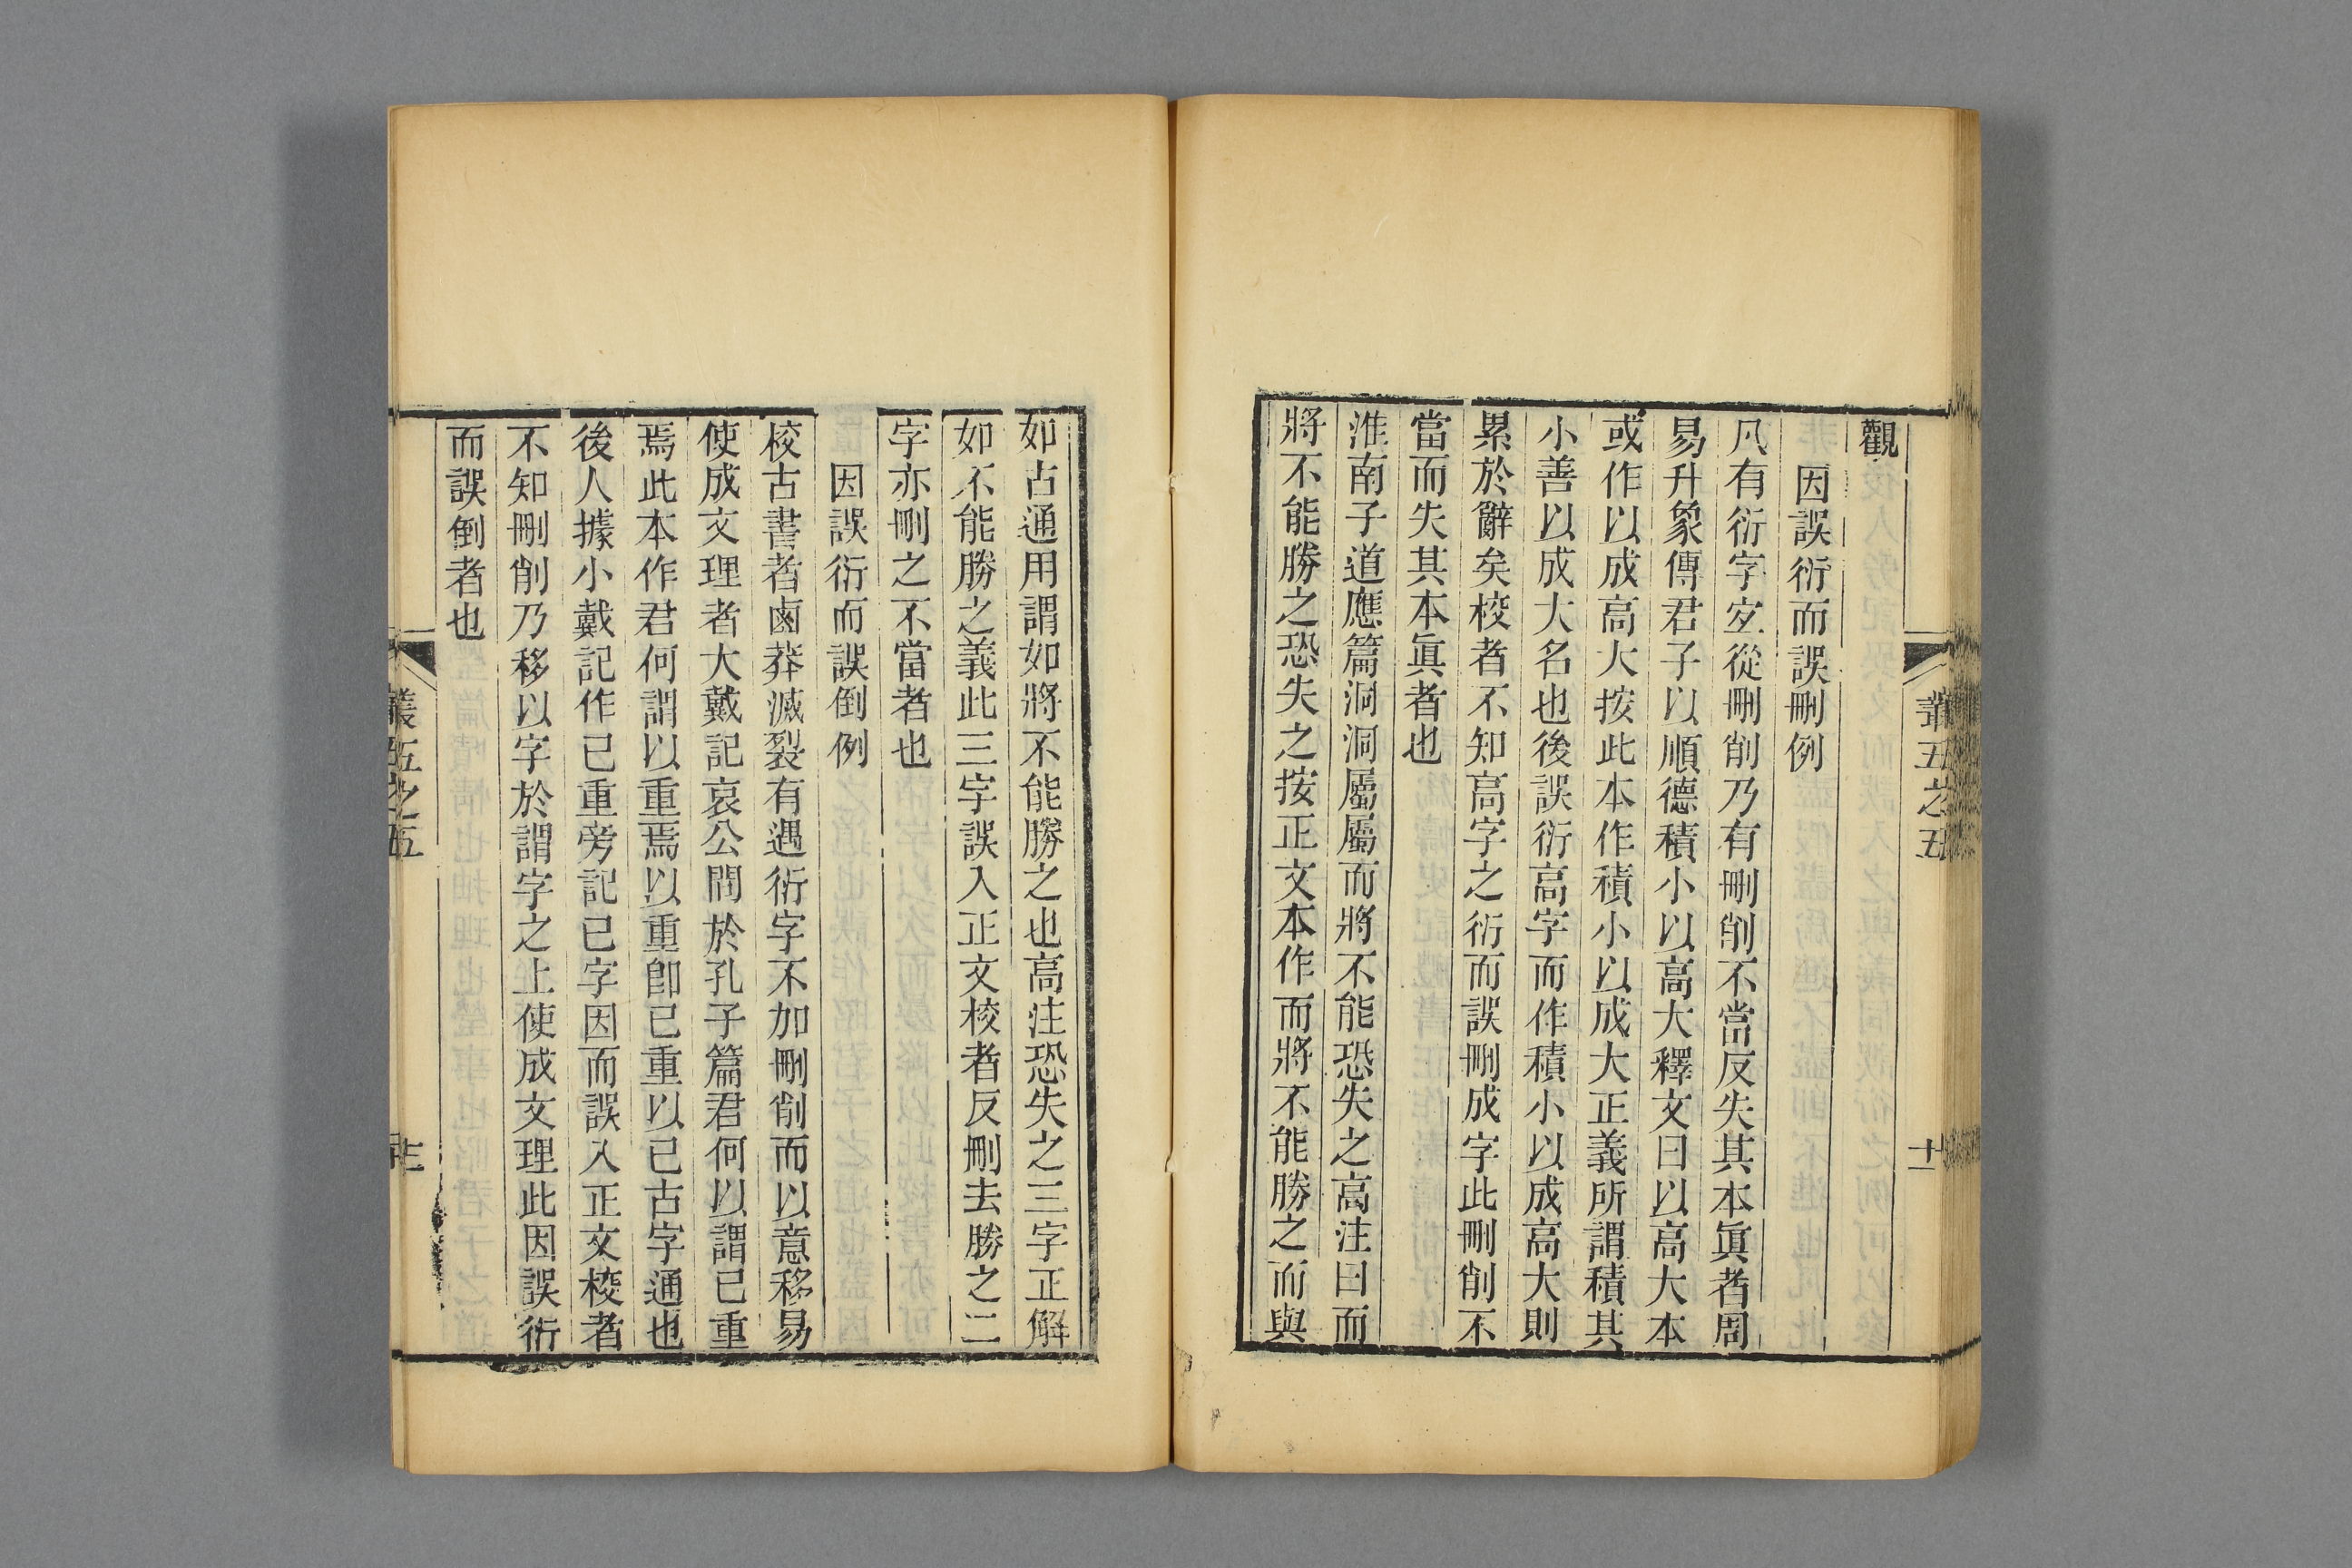 叢五之五
十一
觀
因誤衍而誤刪例
凡有衍字宐從刪削乃有刪削不當反失其本眞者周
易升象傳君子以順德積小以高大釋文曰以高大本
或作以成高大按此本作積小以成大正義所謂積其
小善以成大名也後誤衍高字而作積小以成高大則
累於辭矣校者不知高字之衍而誤刪成字此刪削不
當而失其本眞者也
淮南子道應篇洞洞屬屬而將不能恐失之高注曰而
將不能勝之恐失之按正文本作而將不能勝之而與
如古通用謂如將不能勝之也高注恐失之三字正解
如不能勝之義此三字誤入正文校者反刪去勝之二
字亦刪之不當者也
因誤衍而誤倒例
校古書者鹵莽滅裂有遇衍字不加刪削而以意移易
使成文理者大戴記哀公問於孔子篇君何以謂已重
焉此本作君何謂以重焉以重卽已重以已古字通也
後人據小戴記作已重旁記已字因而誤入正文校者
不知刪削乃移以字於謂字之上使成文理此因誤衍
而誤倒者也
叢五之五